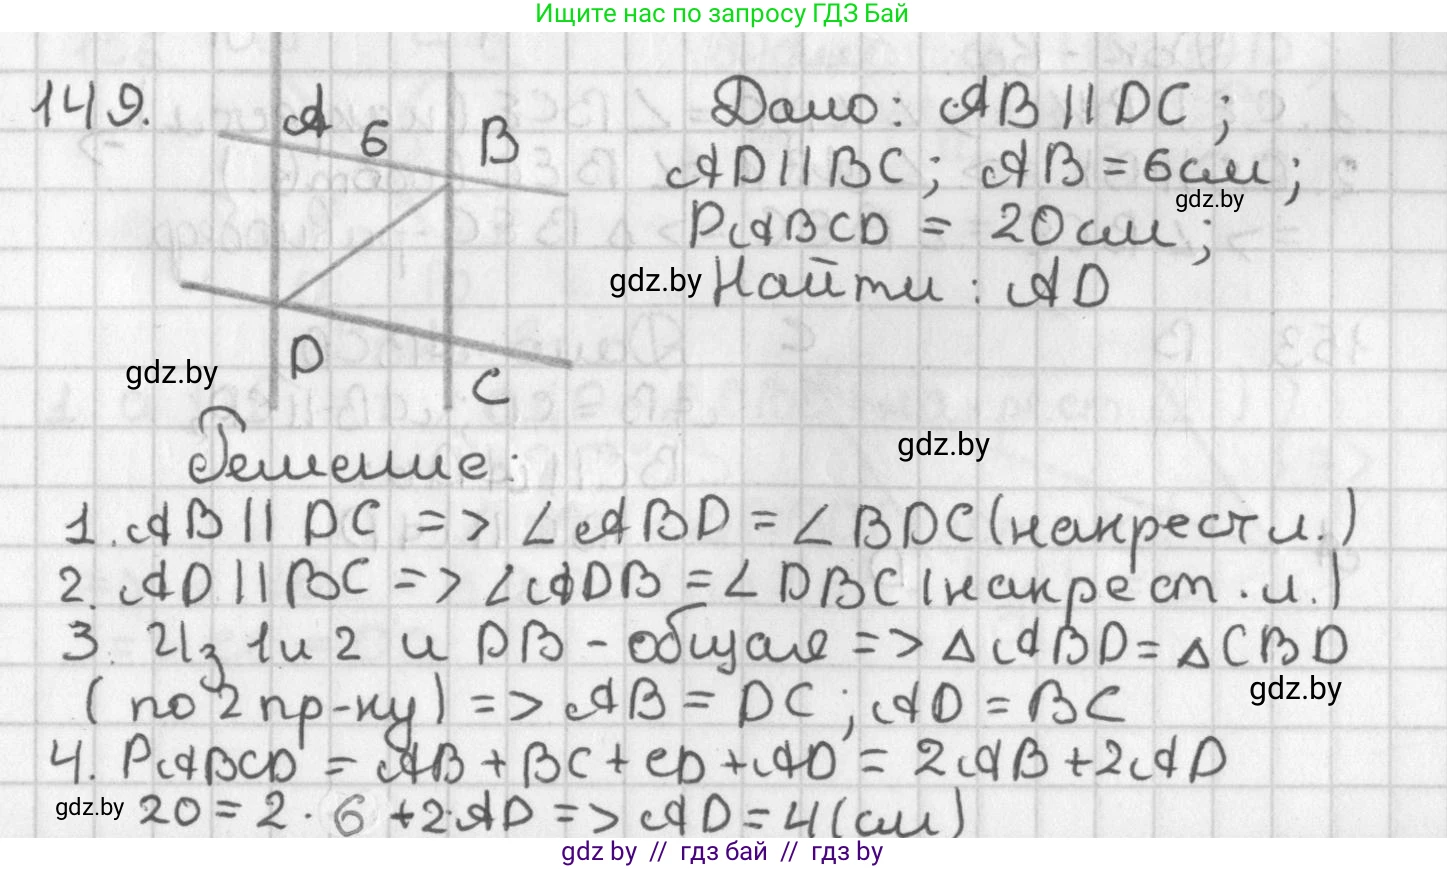 Ищите нас по запросу ГДЗ Бай
149.
A 6 B
D
C
Дано: AB || DC;
AD || BC; AB = 6 см;
gdz.by
PABCD = 20 см;
gdz.by
Найти: AD
gdz.by
gdz.by
Решение:
1. AB || DC => ∠ABD = ∠BDC (накрест л.)
2. AD || BC => ∠ADB = ∠DBC (накрест. л.)
3. Из 1 и 2 и DB - общая => △ABD = △CBD
gdz.by
(по 2 пр-ку) => AB = DC; AD = BC
4. PABCD = AB + BC + CD + AD = 2AB + 2AD
gdz.by
20 = 2 · 6 + 2·AD => AD = 4 (см)
gdz by // гдз бай // гдз by